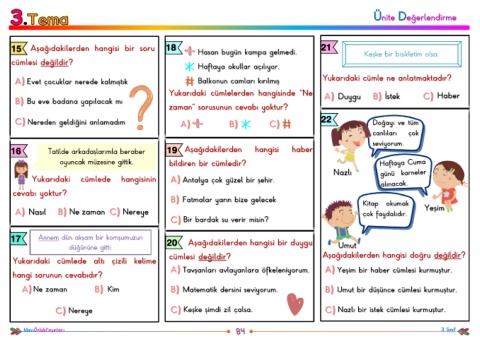 3.Tema
Ünite Değerlendirme
15 Aşağıdakilerden hangisi bir soru
cümlesi değildir?
A) Evet çocuklar nerede kalmıştık
B) Bu eve badana yapılacak mı
C) Nereden geldiğini anlamadım
16
Tatilde arkadaşlarımla beraber
oyuncak müzesine gittik.
Yukarıdaki cümlede hangisinin
cevabı yoktur?
A) Nasıl B) Ne zaman C) Nereye
17
Annem dün akşam bir komşumuzun
düğününe gitti.
Yukarıdaki cümlede altı çizili kelime
hangi sorunun cevabıdır?
A) Ne zaman B) Kim
C) Nereye
18
Hasan bugün kampa gelmedi.
Haftaya okullar açılıyor.
# Balkonun camları kırılmış
Yukarıdaki cümlelerden hangisinde "Ne
zaman" sorusunun cevabı yoktur?
A) + B) * C) #
19 Aşağıdakilerden hangisi haber
bildiren bir cümledir?
A) Antalya çok güzel bir şehir.
B) Fatmalar yarın bize gelecek
C) Bir bardak su verir misin?
20 Aşağıdakilerden hangisi bir duygu
cümlesi değildir?
A) Tavşanları avlayanlara öfkeleniyorum.
B) Matematik dersini seviyorum.
C) Keşke şimdi zil çalsa.
21
Keşke bir bisikletim olsa.
Yukarıdaki cümle ne anlatmaktadır?
A) Duygu B) İstek C) Haber
22
Doğayı ve tüm
canlıları çok
seviyorum.
Nazlı
Haftaya Cuma
günü karneler
alınacak.
Yeşim
Kitap okumak
çok faydalıdır.
Umut
Aşağıdakilerden hangisi doğru değildir?
A) Yeşim bir haber cümlesi kurmuştur.
B) Umut bir düşünce cümlesi kurmuştur.
C) Nazlı bir istek cümlesi kurmuştur.
84
3. Sınıf